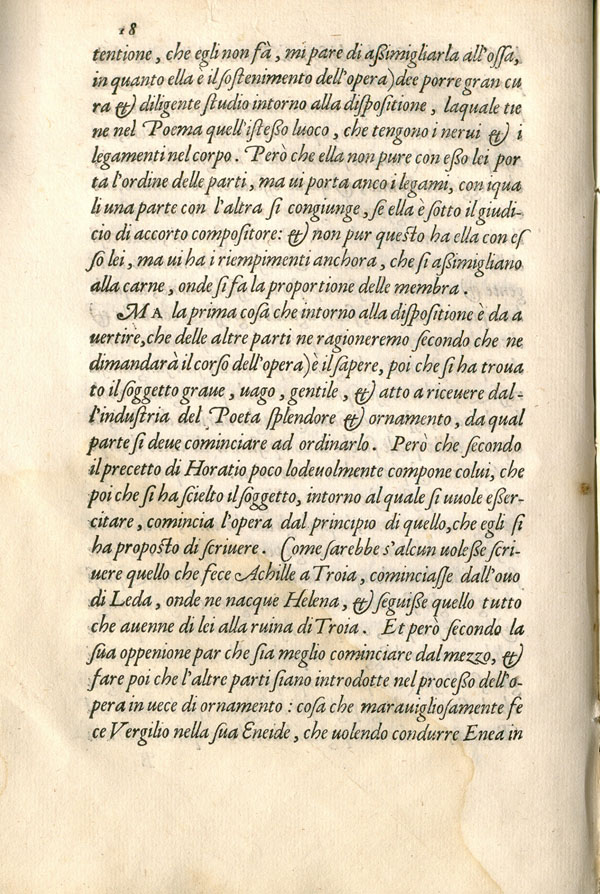 18
tentione, che egli non fà, mi pare di aßimigliarla all'ossa,
in quanto ella è il sostenimento dell'opera) dee porre gran cu
ra & diligente studio intorno alla dispositione, laquale tie
ne nel Poema quell'isteßo luoco, che tengono i nerui & i
legamenti nel corpo. Però che ella non pure con eßo lei por
ta l'ordine delle parti, ma ui porta anco i legami, con iqua
li una parte con l'altra si congiunge, se ella è sotto il giudi-
cio di accorto compositore: & non pur questo ha ella con es
so lei, ma ui ha i riempimenti anchora, che si aßimigliano
alla carne, onde si fa la proportione delle membra.
MA la prima cosa che intorno alla dispositione è da a
uertire, che delle altre parti ne ragioneremo secondo che ne
dimandarà il corso dell'opera) è il sapere, poi che si ha troua
to il soggetto graue, uago, gentile, & atto a riceuere dal-
l'industria del Poeta splendore & ornamento, da qual
parte si deue cominciare ad ordinarlo. Però che secondo
il precetto di Horatio poco lodeuolmente compone colui, che
poi che si ha scielto il soggetto, intorno al quale si uuole eßer-
citare, comincia l'opera dal principio di quello, che egli si
ha proposto di scriuere. Come sarebbe s'alcun uoleße scri-
uere quello che fece Achille a Troia, cominciasse dall'ouo
di Leda, onde ne nacque Helena, & seguiße quello tutto
che auenne di lei alla ruina di Troia. Et però secondo la
sua oppenione par che sia meglio cominciare dal mezzo, &
fare poi che l'altre parti siano introdotte nel proceßo dell'o-
pera in uece di ornamento: cosa che marauigliosamente fe
ce Vergilio nella sua Eneide, che uolendo condurre Enea in